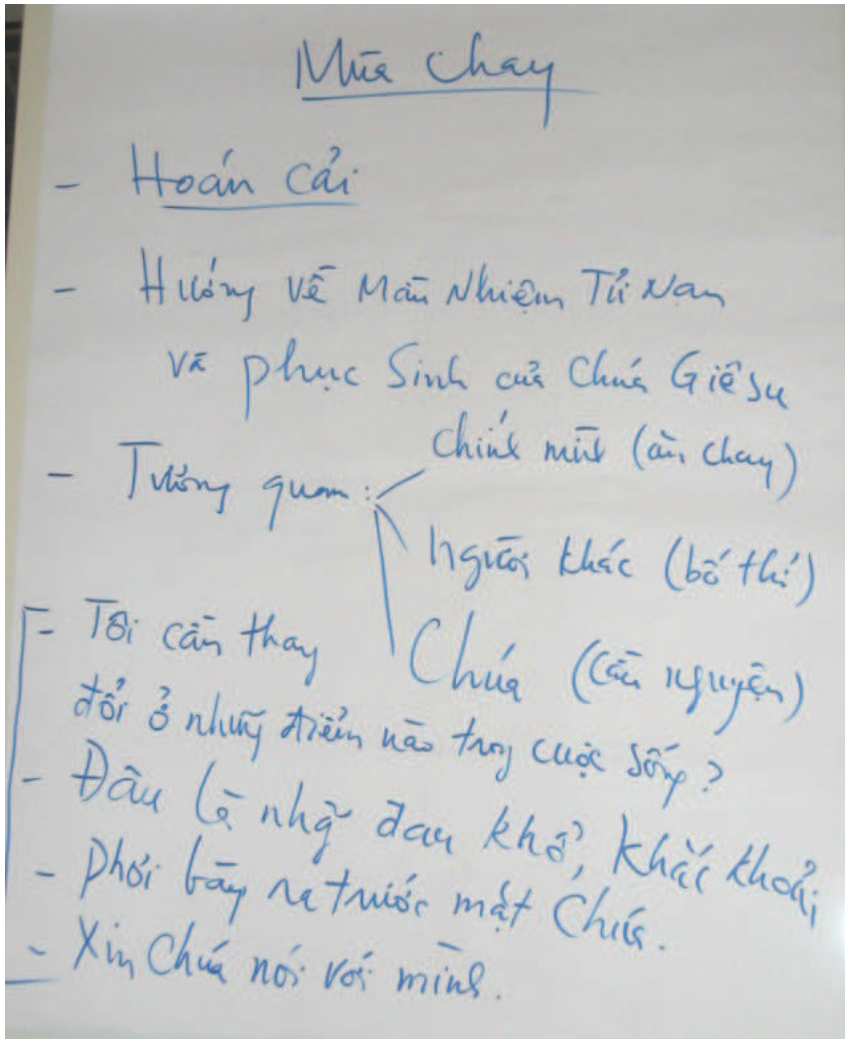 Mùa chay
- Hoán cải
- Hướng về Mầu Nhiệm Tử Nạn
và phục Sinh của Chúa Giêsu
- Tương quan: chính mình (ăn chay)
người khác (bố thí)
Chúa (cầu nguyện)
- Tôi cần thay
đổi ở những điểm nào trong cuộc sống?
- Đâu là nhữg đau khổ, khắc khoải,
- phơi bày ra trước mặt Chúa.
- Xin Chúa nói với mình.